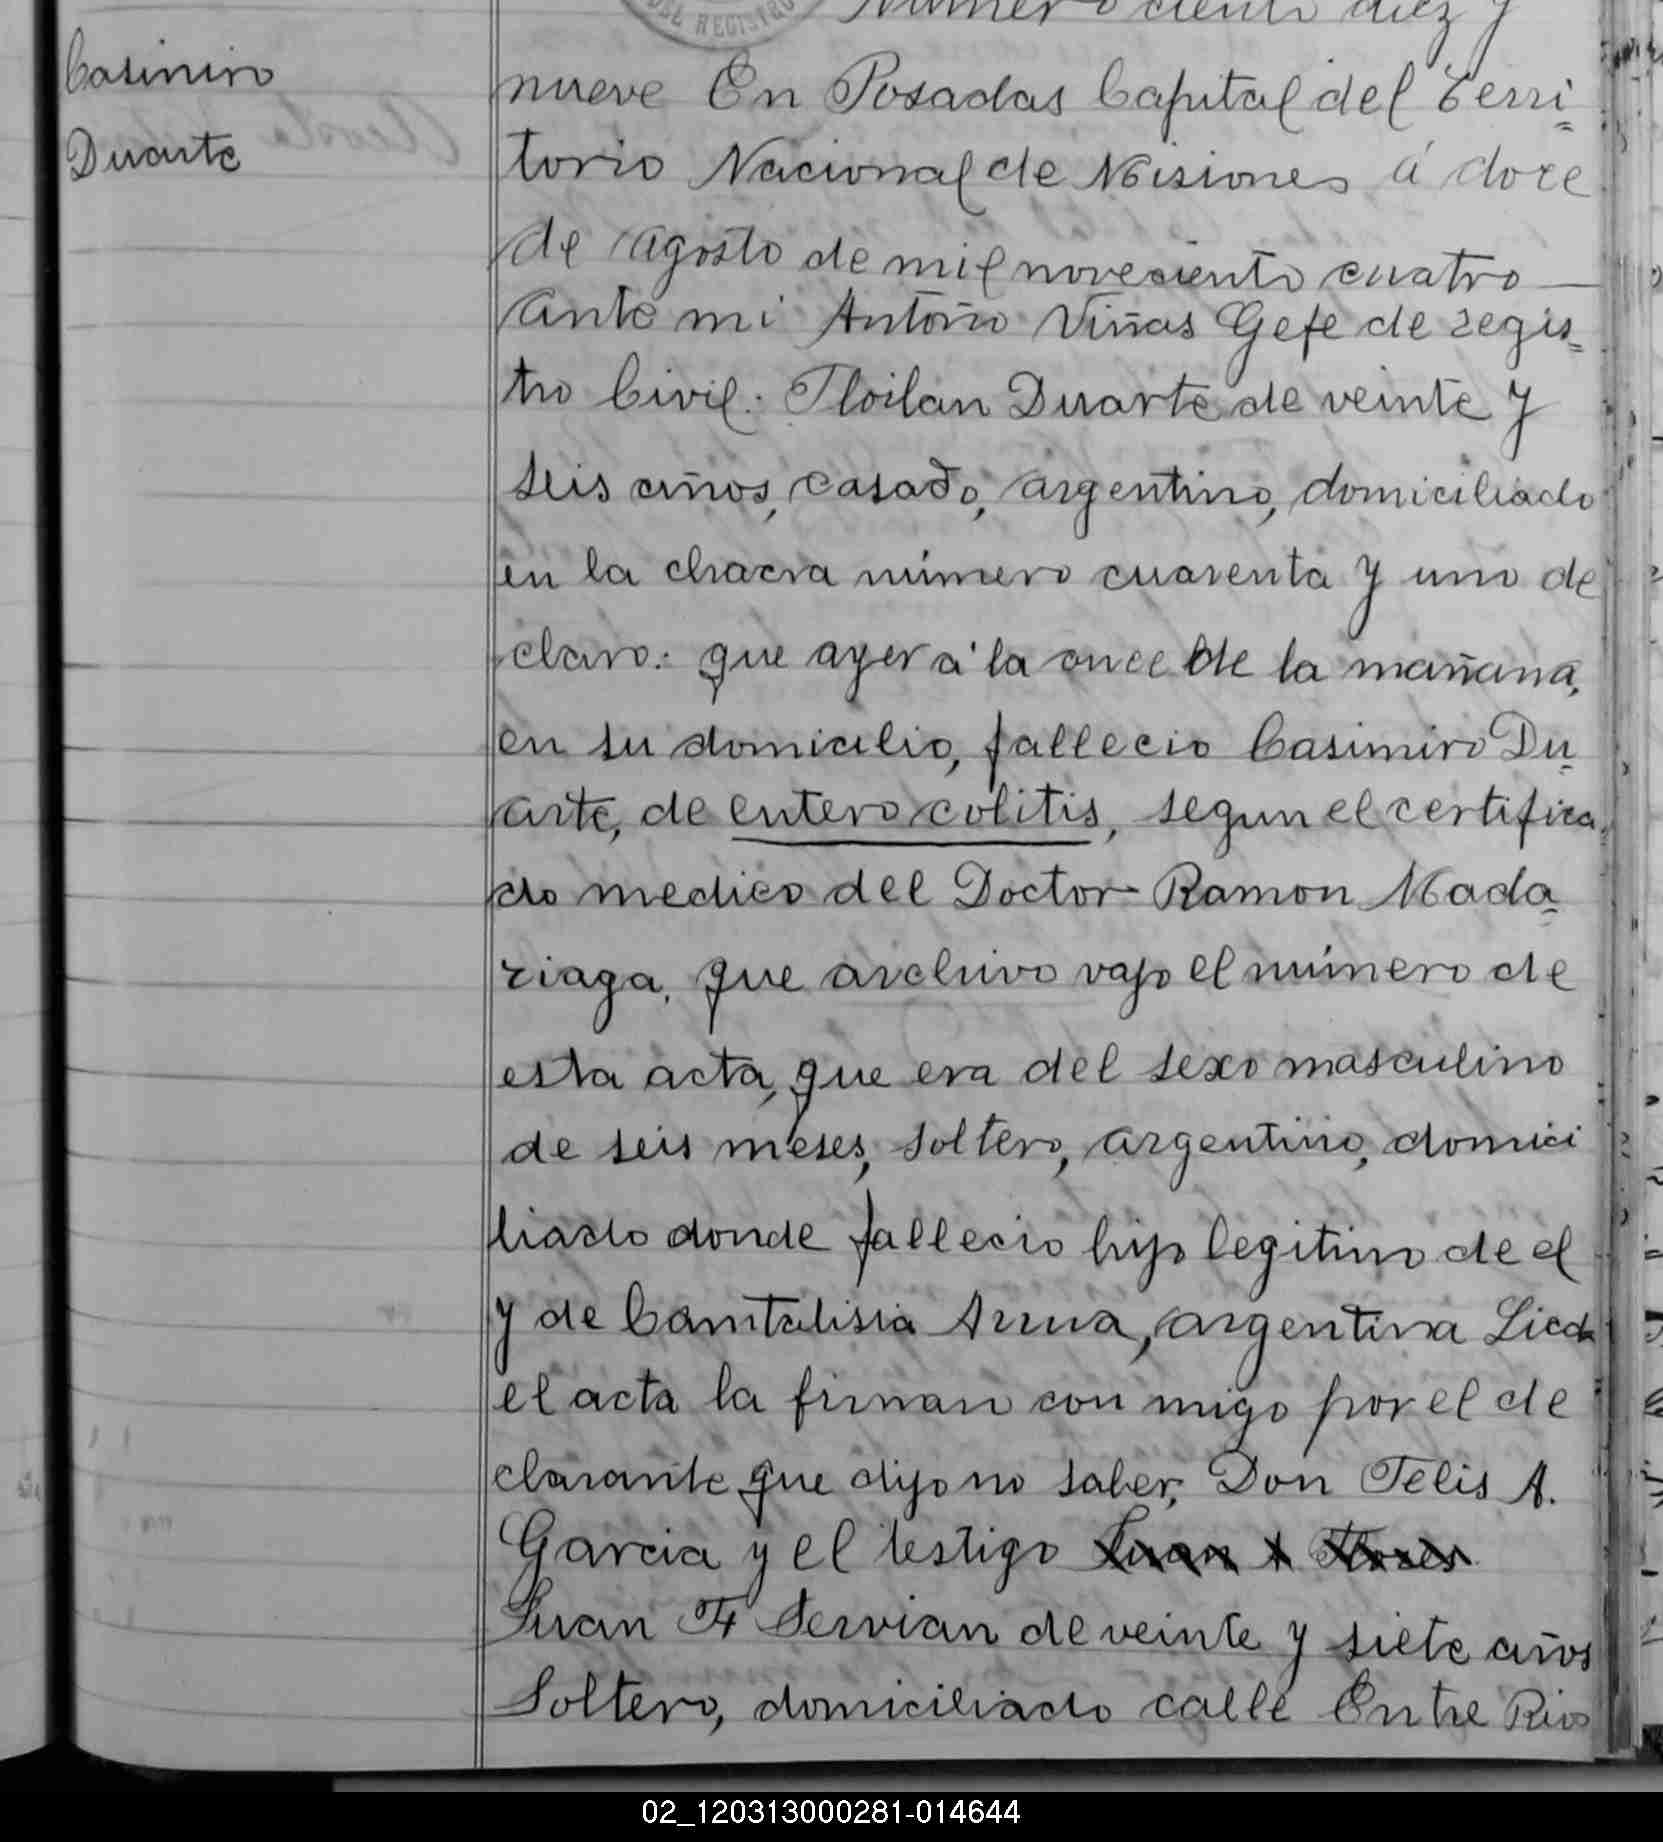 DEL REGISTRO
Número ciento diez y
Casimiro
Duarte
nueve En Posadas Capital del Terri=
torio Nacional de Misiones á doce
de Agosto de mil noveciento cuatro
ante mi Antonio Viñas Gefe de regis=
tro Civil: Floilan Duarte de veinte y
seis años, casado, argentino, domiciliado
en la chacra número cuarenta y uno de
claro: que ayer á la once de la mañana,
en su domicilio, fallecio Casimiro Du=
arte, de entero colitis, segun el certifica
do medico del Doctor Ramon Mada=
riaga, que archivo vajo el número de
esta acta, que era del sexo masculino
de seis meses, soltero, argentino, domici
liado donde fallecio hijo legitimo de el
y de argentina Lieda
el acta la firman con migo por el de
clarante que dijo no saber, Don Felis A.
Garcia y el testigo Juan Flores
Juan F Servian de veinte y siete años
Soltero, domiciliado calle Entre Rios
02_120313000281-014644